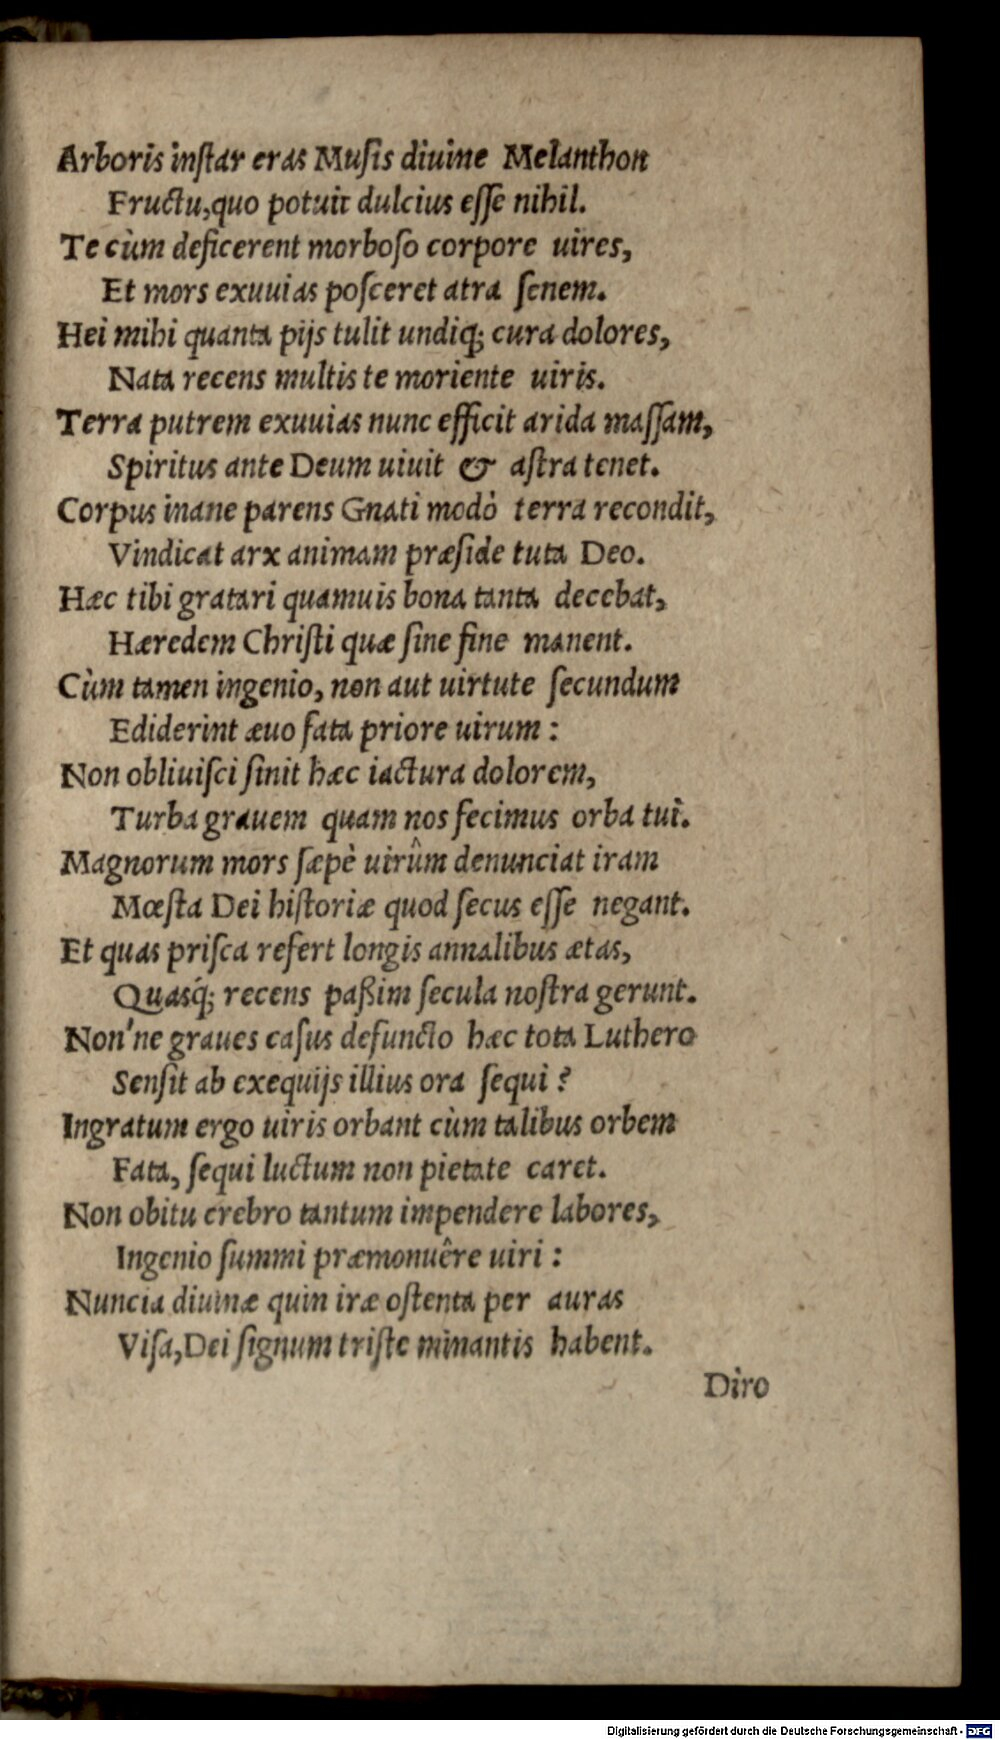 Arboris inſtar eras Muſis diuine Melanthon
Fructu,quo potuit dulcius eſſe nihil.
Te cùm deficerent morboſo corpore uires,
Et mors exuuias poſceret atra ſenem.
Hei mihi quanta pijs tulit undiq; cura dolores,
Nata recens multis te moriente uiris.
Terra putrem exuuias nunc efficit arida maſſam,
Spiritus ante Deum uiuit & aſtra tenet.
Corpus inane parens Gnati modò terra recondit,
Vindicat arx animam præſide tuta Deo.
Hæc tibi gratari quamuis bona tanta decebat,
Hæredem Chriſti quæ ſine fine manent.
Cùm tamen ingenio, non aut uirtute ſecundum
Ediderint æuo fata priore uirum :
Non obliuiſci ſinit hæc iactura dolorem,
Turba grauem quam nos fecimus orba tui.
Magnorum mors ſæpè uirûm denunciat iram
Mœſta Dei hiſtoriæ quod ſecus eſſe negant.
Et quas priſca refert longis annalibus ætas,
Quasq́; recens paßim ſecula noſtra gerunt.
Non'ne graues caſus defuncto hæc tota Luthero
Senſit ab exequijs illius ora ſequi ?
Ingratum ergo uiris orbant cùm talibus orbem
Fata, ſequi luctum non pietate caret.
Non obitu crebro tantum impendere labores,
Ingenio ſummi præmonuêre uiri :
Nuncia diuinæ quin iræ oſtenta per auras
Viſa,Dei ſignum triſte minantis habent.
Diro
Digitalisierung gefördert durch die Deutsche Forschungsgemeinschaft - DFG